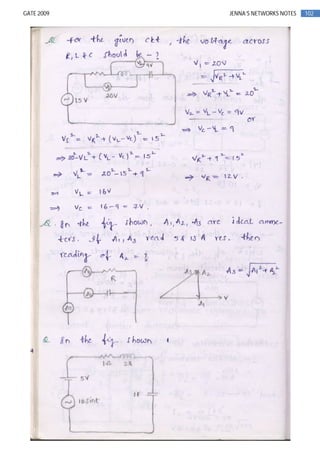 GATE 2009
JENNA'S NETWORKS NOTES 102
Q. for the given ckt, the voltage across
R, L & C should be - ?
9V
20V
15V
V₁ = 20V
= √VR² + VL²
⇒ VR² + VL² = 20²
V2 = VL - VC = 9V
or
⇒ VC - VL = 9
= VR² + (VL - VC)² = 15²
⇒ 20² - VL² + (VL - VC)² = 15²
VR² + 9² = 15²
⇒ VL² = 20² - 15² + 9²
⇒ VR = 12V.
⇒ VL = 16V
⇒ VC = 16 - 9 = 7V.
Q. In the fig. shown, A1, A2, A3 are ideal amme-
ters. If A1, A3 read 5 & 13 A res. then
reading of A2 = ?
A1
R
A2
A3
A2
A3 = √A1² + A2²
V
A1
Q. In the fig. shown
1Ω 2H
5V
10 sint
1F